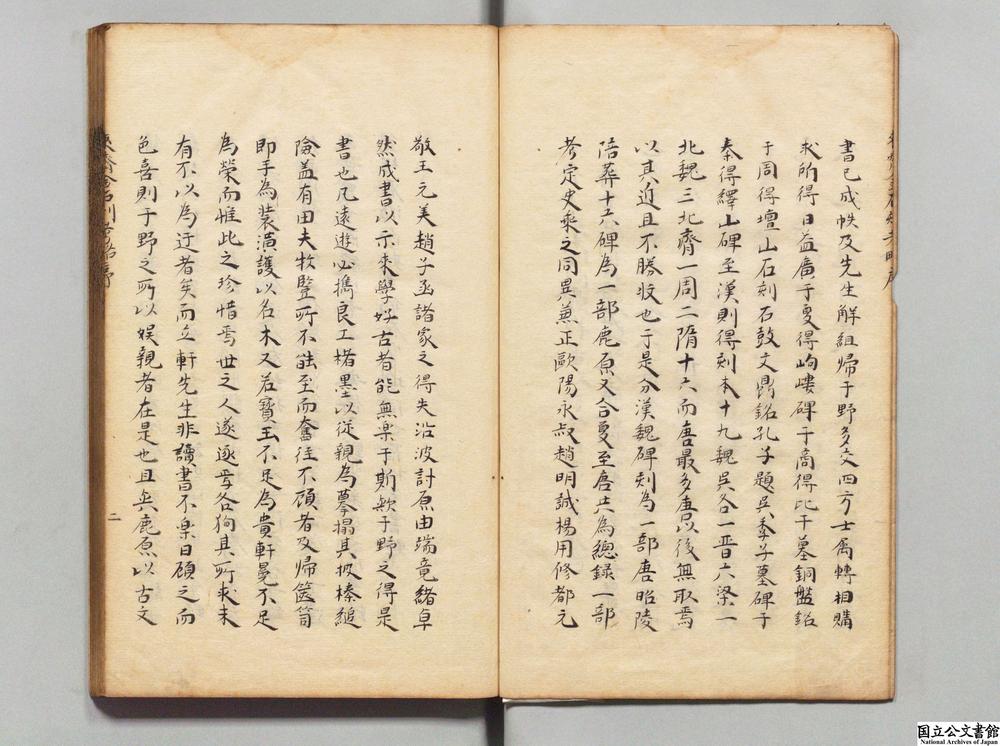 書已成帙及先生解組歸于野多交四方士為轉相購
求所得日益廣于夏得岣嶁碑于商得比干墓銅盤銘
于周得壇山石刻石鼓文鼎銘孔子題吳季子墓碑于
秦得繹山碑至漢則得刻本十九魏吳各一晋六梁一
北魏三北齊一周二隋十六而唐最多唐以後無取焉
以其近且不勝收也于是分漢魏碑刻為一部唐昭陵
陪葬十六碑為一部鹿原又合夏至唐共為總錄一部
考定史乘之同異兼正歐陽永叔趙明誠楊用修都元
敬王元美趙子函諸家之得失沿波討原由端竟緒卓
然成書以示來學好古者能無樂于斯歟于野之得是
書也凡遠遊必攜良工楮墨以從親為摹搨其披榛縋
險益有田夫牧豎所不能至而奮往不顧者及歸篋笥
即手為裝潢護以名木又若寶玉不足為貴軒冕不足
為榮而惟此之珍惜焉世之人遂逐字各狥其所求未
有不以為迂者矣而立軒先生非讀書不樂日顧之而
色喜則于野之所以娱親者在是也且與鹿原以古文
二
國立公文書館
National Archives of Japan